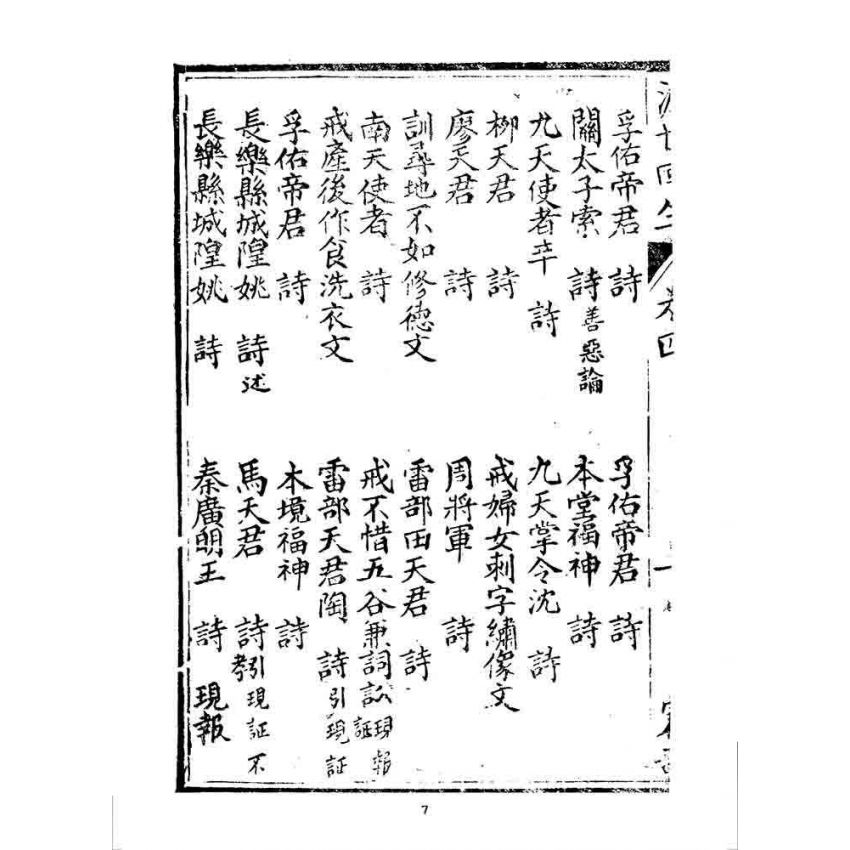 卷四
孚佑帝君 詩
孚佑帝君 詩
關太子索 詩 善惡論
本堂福神 詩
九天使者 詩
九天掌令沈 詩
柳天君 詩
戒婦女刺字繡像文
廖天君 詩
周將軍 詩
訓尋地不如修德文
雷部田天君 詩
南天使者 詩
戒不惜五谷兼詞訟 現報証
戒產後作食洗衣文
雷部天君陶 詩 引現証
孚佑帝君 詩
本境福神 詩
長樂縣城隍姚 詩 述
馬天君 詩 引現証不孝
長樂縣城隍姚 詩
秦廣明王 詩 現報
7